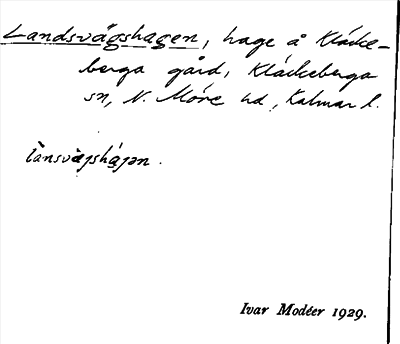 Landsvägshagen, hage å Kläcke-
berga gård, Kläckeberga
sn, N. Möre hd, Kalmar l.
lànsvägshágən.
Ivar Modéer 1929.